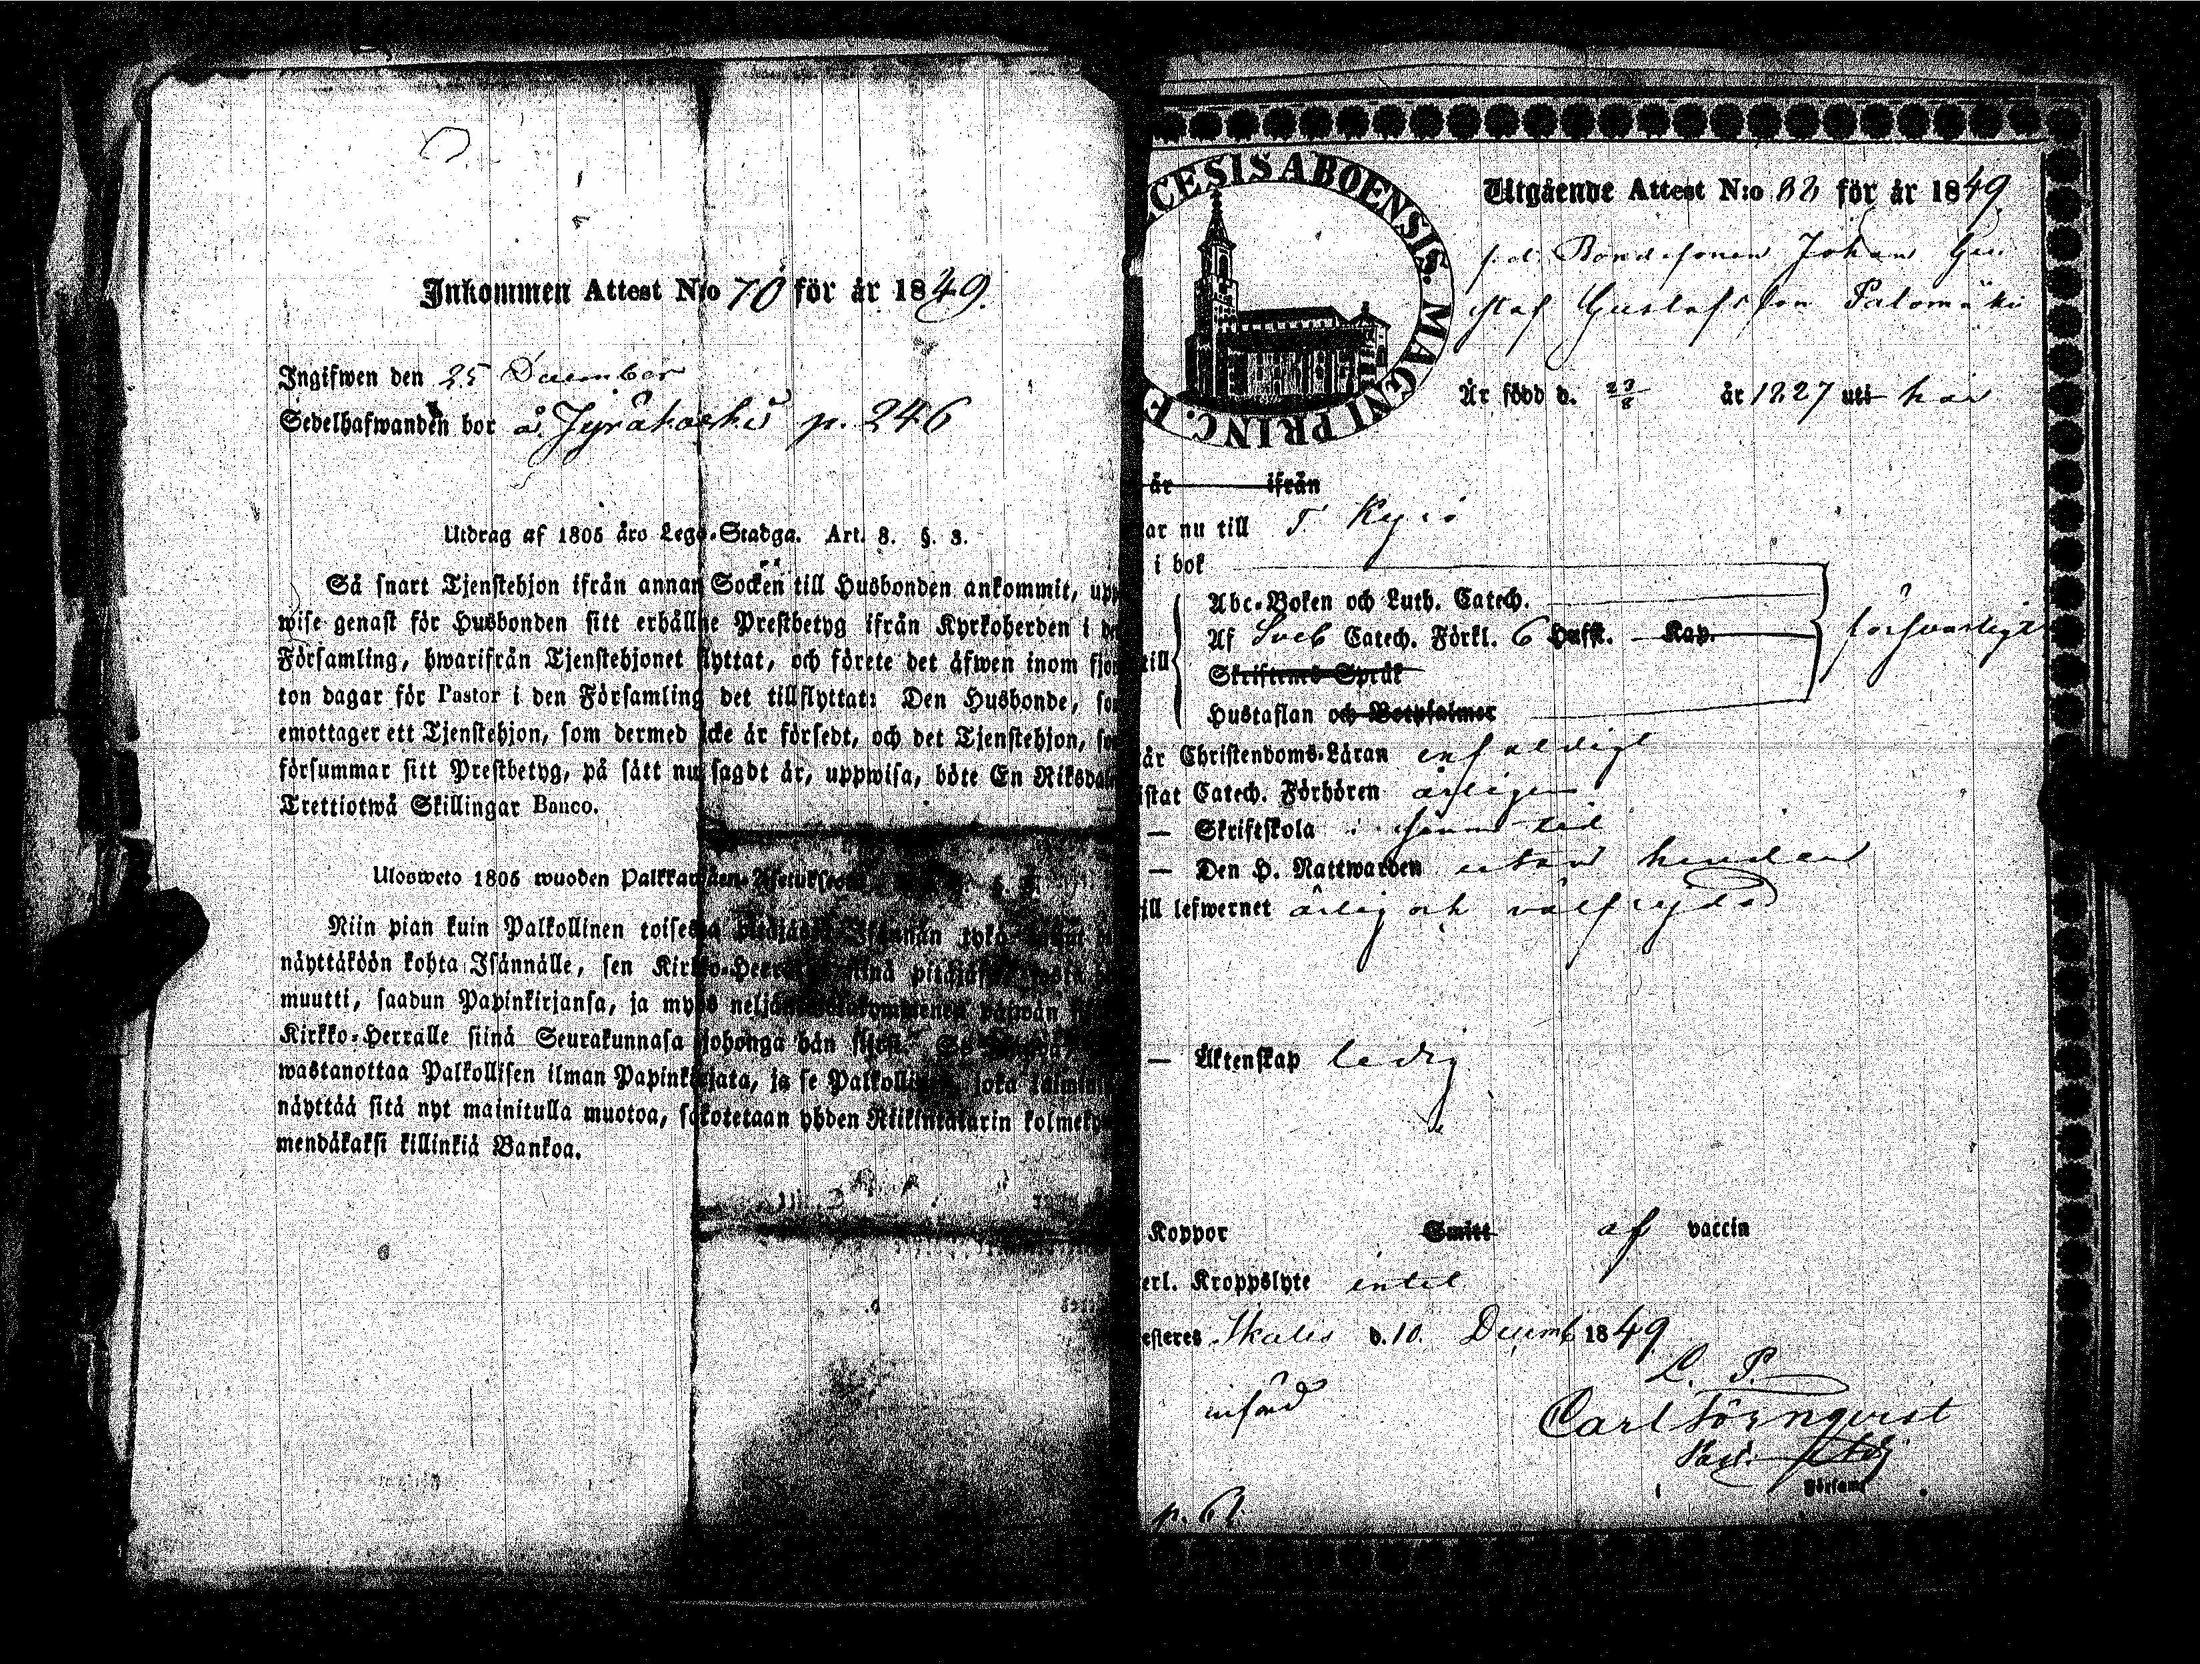 Inkommen Attest N:o 70 för år 1849.
Ingifwen den 25 December
Sedelhafwanden bor å Jyräkoski p. 246
Utdrag af 1805 års Lego-Stadga. Art. 8. §. 3.
Så snart Tjenstehjon ifrån annan Socken till Husbonden ankommit, upp
wise genast för Husbonden sitt erhållne Prestbetyg ifrån Kyrkoherden i de
Församling, hwarifrån Tjenstehjonet flyttat, och förete det äfwen inom fjor
ton dagar för Pastor i den Församling det tillflyttat: Den Husbonde, so
emottager ett Tjenstehjon, som dermed icke är försedt, och det Tjenstehjon, so
försummar sitt Prestbetyg, på sätt nu sagdt är, uppwisa, böte En Riksdal
Trettiotwå Skillingar Banco.
Ulosweto 1805 wuoden Palkka
Niin pian kuin Palkollinen toisesta
näyttäköön kohta Isännälle, sen Kirkko-Herr
muutti, saadun Papinkirjansa, ja myös
Kirkko-Herralle siinä Seurakunnasa johonga hän
wastanottaa Palkollisen ilman Papinkirjata, ja se Palkollinen, joka
näyttää sitä nyt mainitulla muotoa, sakotetaan yhden Riikintalarin kolmeky
mendäkaksi killinkiä Bankoa.
CESIS ABOENSIS. MAGNI PRINC. F
Utgående Attest N:o 82 för år 1849
f. d. Bondesonen Johan Gu
staf Gustafsson Palomäki
Är född d. 27/8 år 1827 uti här
är ifrån
ar nu till Kyrö
i bok
Abc-Boken och Luth. Catech.
Af Sveb Catech. Förkl. 6 Hufst. Kap. försvarligt
till
Skriftens Språk
Hustaflan och Botpsalmer
är Christendoms-Läran enfaldigt
istat Catech. Förhören årligen
— Skriftskola i sinom tid
— Den H. Nattwarden utan hinder
ill lefwernet ärlig och välfrejdad
— Äktenskap ledig
Koppor Smitt af vaccin
erl. Kroppslyte intet
esteres Ikalis d. 10 Decemb 1849
L. P.
införd
Carl Törnqvist
Församl
p. 61